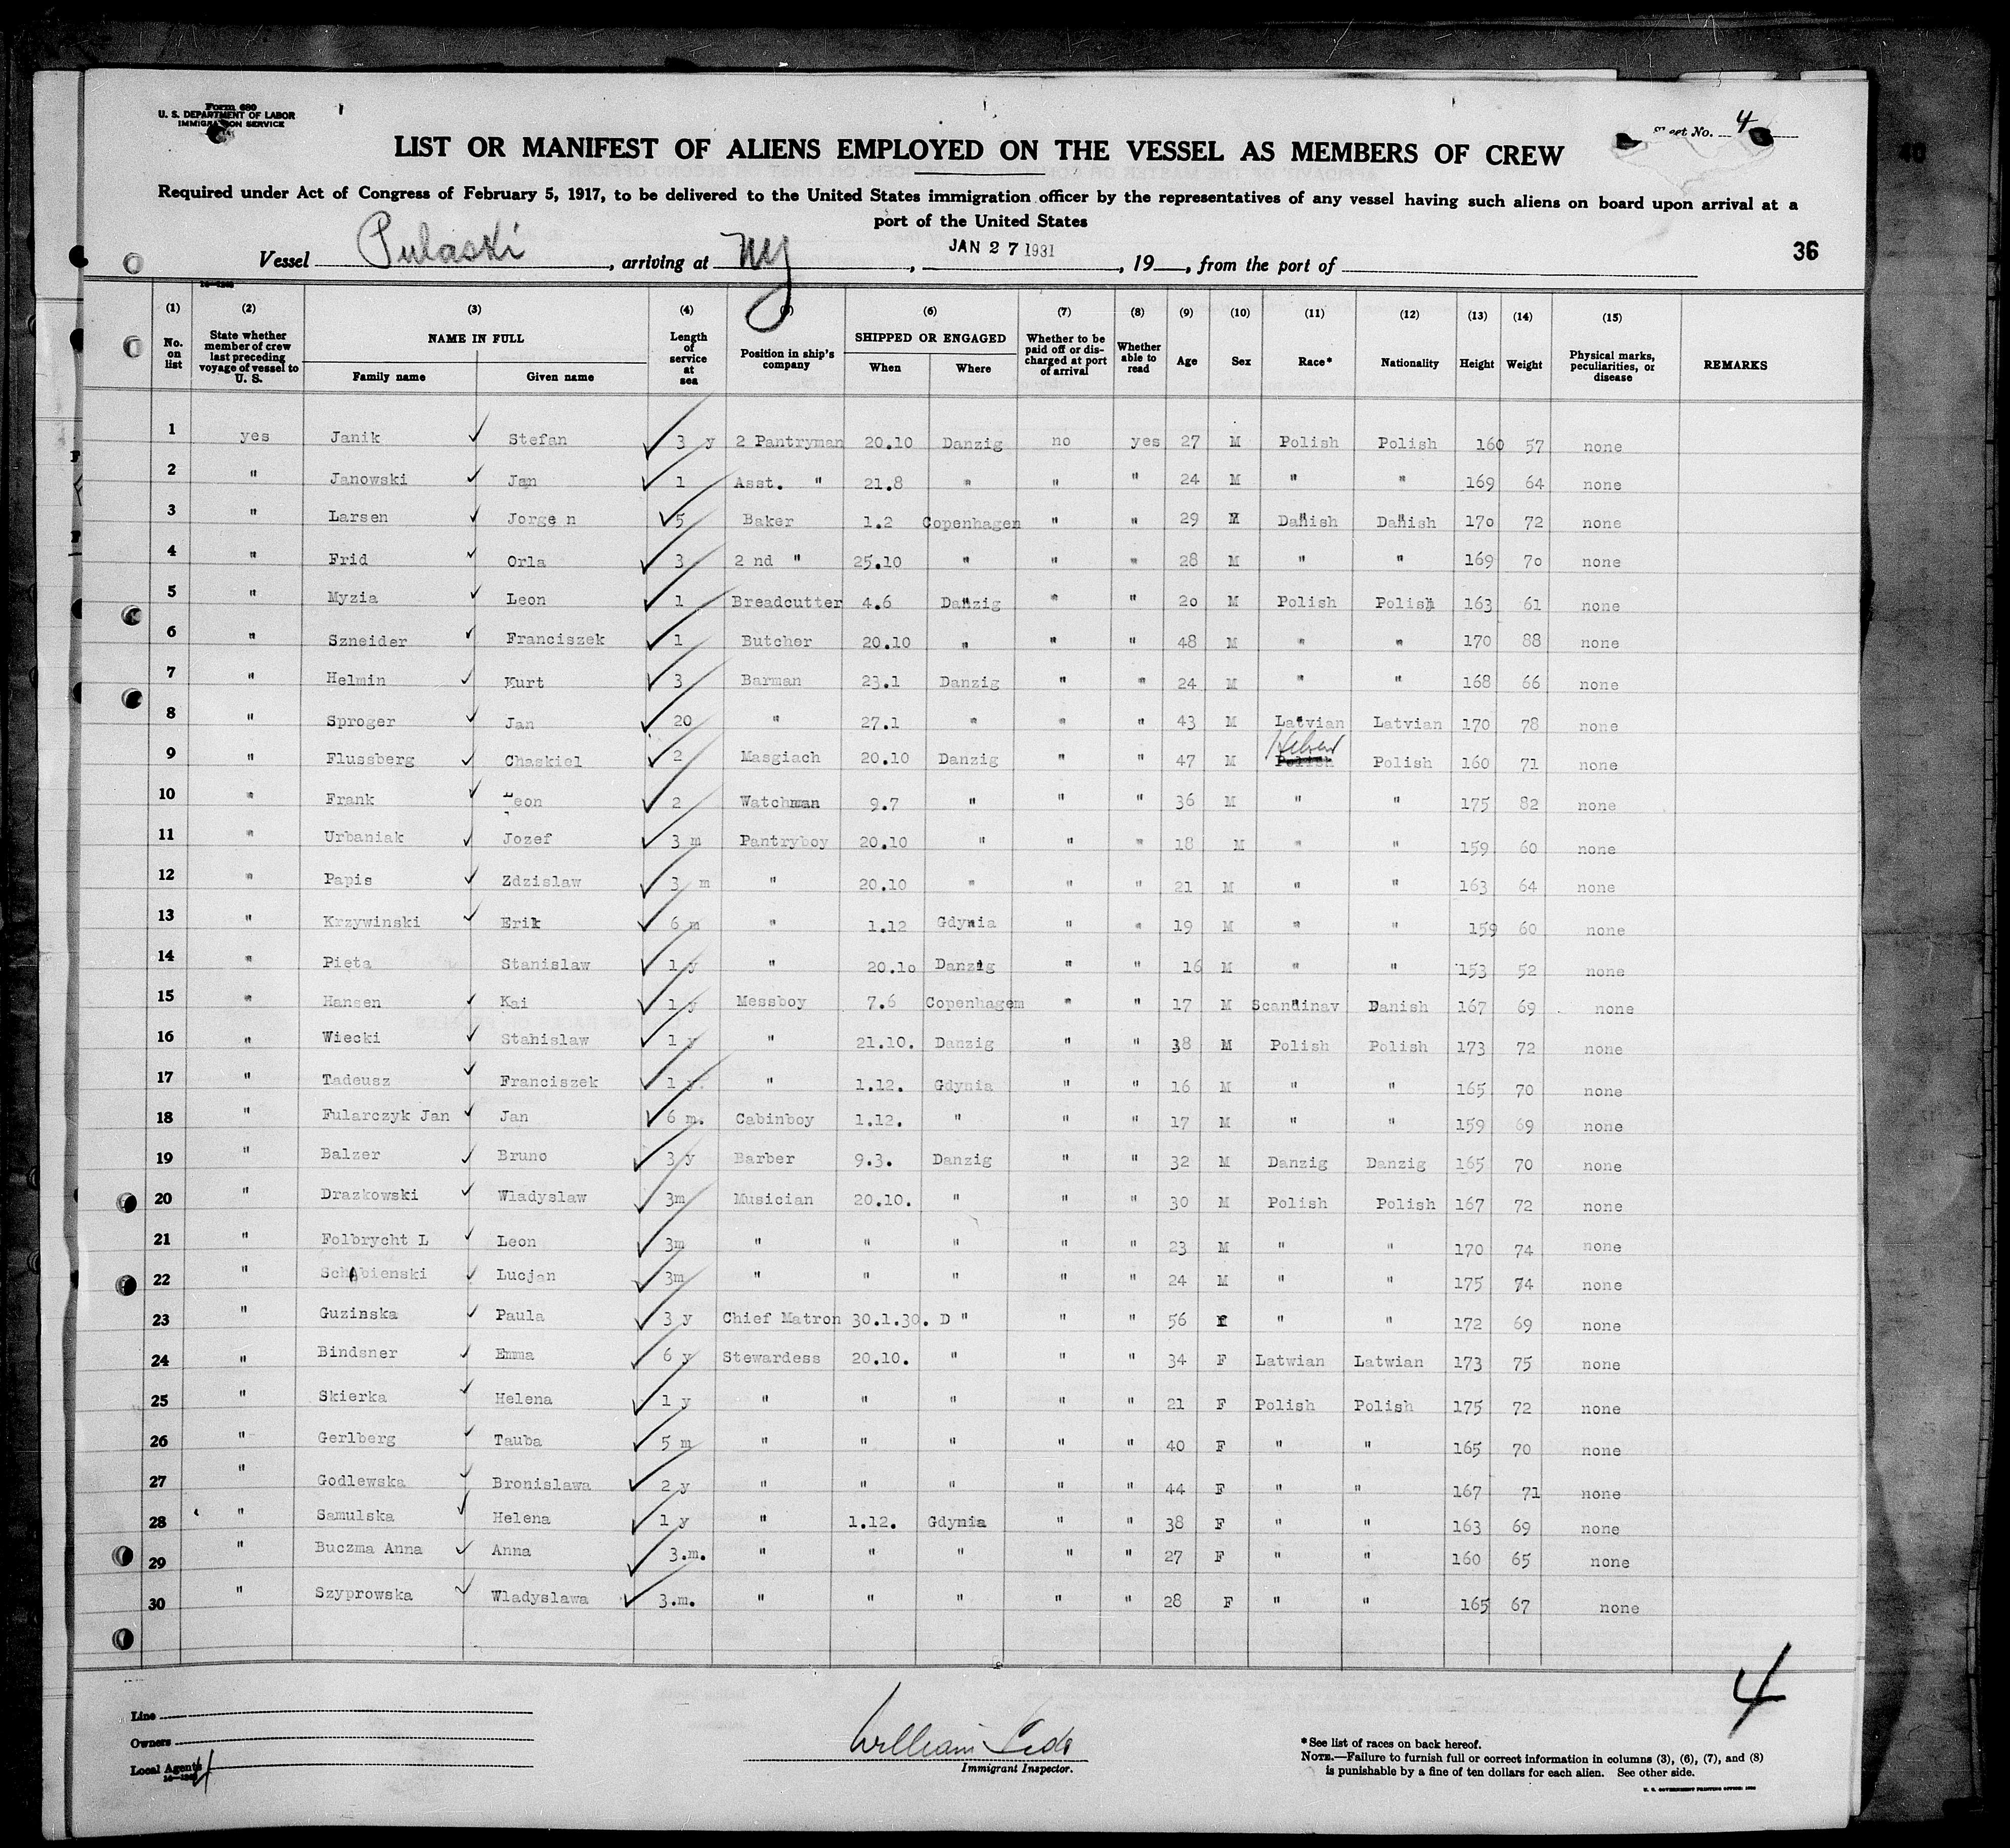 Form 680
U. S. DEPARTMENT OF LABOR
IMMIGRATION SERVICE
Sheet No. 4
LIST OR MANIFEST OF ALIENS EMPLOYED ON THE VESSEL AS MEMBERS OF CREW
40
Required under Act of Congress of February 5, 1917, to be delivered to the United States immigration officer by the representatives of any vessel having such aliens on board upon arrival at a
port of the United States
Vessel Pulaski, arriving at NY, JAN 27 1931, 19__, from the port of
36
(1) (2) (3) (4) (6) (7) (8) (9) (10) (11) (12) (13) (14) (15)
No. on list State whether member of crew last preceding voyage of vessel to U. S. NAME IN FULL Family name Given name Length of service at sea Position in ship's company SHIPPED OR ENGAGED When Where Whether to be paid off or discharged at port of arrival Whether able to read Age Sex Race* Nationality Height Weight Physical marks, peculiarities, or disease REMARKS
1 yes Janik Stefan 3 y 2 Pantryman 20.10 Danzig no yes 27 M Polish Polish 160 57 none
2 " Janowski Jan 1 Asst. " 21.8 " " " 24 M " " 169 64 none
3 " Larsen Jorge n 5 Baker 1.2 Copenhagen " " 29 M Danish Danish 170 72 none
4 " Frid Orla 3 2 nd " 25.10 " " " 28 M " " 169 70 none
5 " Myzia Leon 1 Breadcutter 4.6 Danzig " " 20 M Polish Polish 163 61 none
6 " Szneider Franciszek 1 Butcher 20.10 " " " 48 M " " 170 88 none
7 " Helmin Kurt 3 Barman 23.1 Danzig " " 24 M " " 168 66 none
8 " Sproger Jan 20 " 27.1 " " " 43 M Latvian Latvian 170 78 none
9 " Flussberg Chaskiel 2 Masgiach 20.10 Danzig " " 47 M Hebrew Polish Polish 160 71 none
10 " Frank Leon 2 Watchman 9.7 " " " 36 M " " 175 82 none
11 " Urbaniak Jozef 3 m Pantryboy 20.10 " " " 18 M " " 159 60 none
12 " Papis Zdzislaw 3 m " 20.10 " " " 21 M " " 163 64 none
13 " Krzywinski Erik 6 m " 1.12 Gdynia " " 19 M " " 159 60 none
14 " Pieta Stanislaw 1 y " 20.10 Danzig " " 16 M " " 153 52 none
15 " Hansen Kai 1 y Messboy 7.6 Copenhagem " " 17 M Scandinav Danish 167 69 none
16 " Wiecki Stanislaw 1 y " 21.10. Danzig " " 38 M Polish Polish 173 72 none
17 " Tadeusz Franciszek 1 y. " 1.12. Gdynia " " 16 M " " 165 70 none
18 " Fularczyk Jan Jan 6 m. Cabinboy 1.12. " " " 17 M " " 159 69 none
19 " Balzer Bruno 3 y Barber 9.3. Danzig " " 32 M Danzig Danzig 165 70 none
20 " Drazkowski Wladyslaw 3m Musician 20.10. " " " 30 M Polish Polish 167 72 none
21 " Folbrycht L Leon 3m " " " " " 23 M " " 170 74 none
22 " Schabienski Lucjan 3m " " " " " 24 M " " 175 74 none
23 " Guzinska Paula 3 y Chief Matron 30.1.30. D " " " 56 F " " 172 69 none
24 " Bindsner Emma 6 y Stewardess 20.10. " " " 34 F Latwian Latwian 173 75 none
25 " Skierka Helena 1 y " " " " " 21 F Polish Polish 175 72 none
26 " Gerlberg Tauba 5 m " " " " " 40 F " " 165 70 none
27 " Godlewska Bronislawa 2 y " " " " " 44 F " " 167 71 none
28 " Samulska Helena 1 y " 1.12. Gdynia " " 38 F " " 163 69 none
29 " Buczma Anna Anna 3.m. " " " " " 27 F " " 160 65 none
30 " Szyprowska Wladyslawa 3.m. " " " " " 28 F " " 165 67 none
4
Line
Owners
Local Agents
William
Immigrant Inspector.
*See list of races on back hereof.
NOTE.—Failure to furnish full or correct information in columns (3), (6), (7), and (8)
is punishable by a fine of ten dollars for each alien. See other side.
U. S. GOVERNMENT PRINTING OFFICE